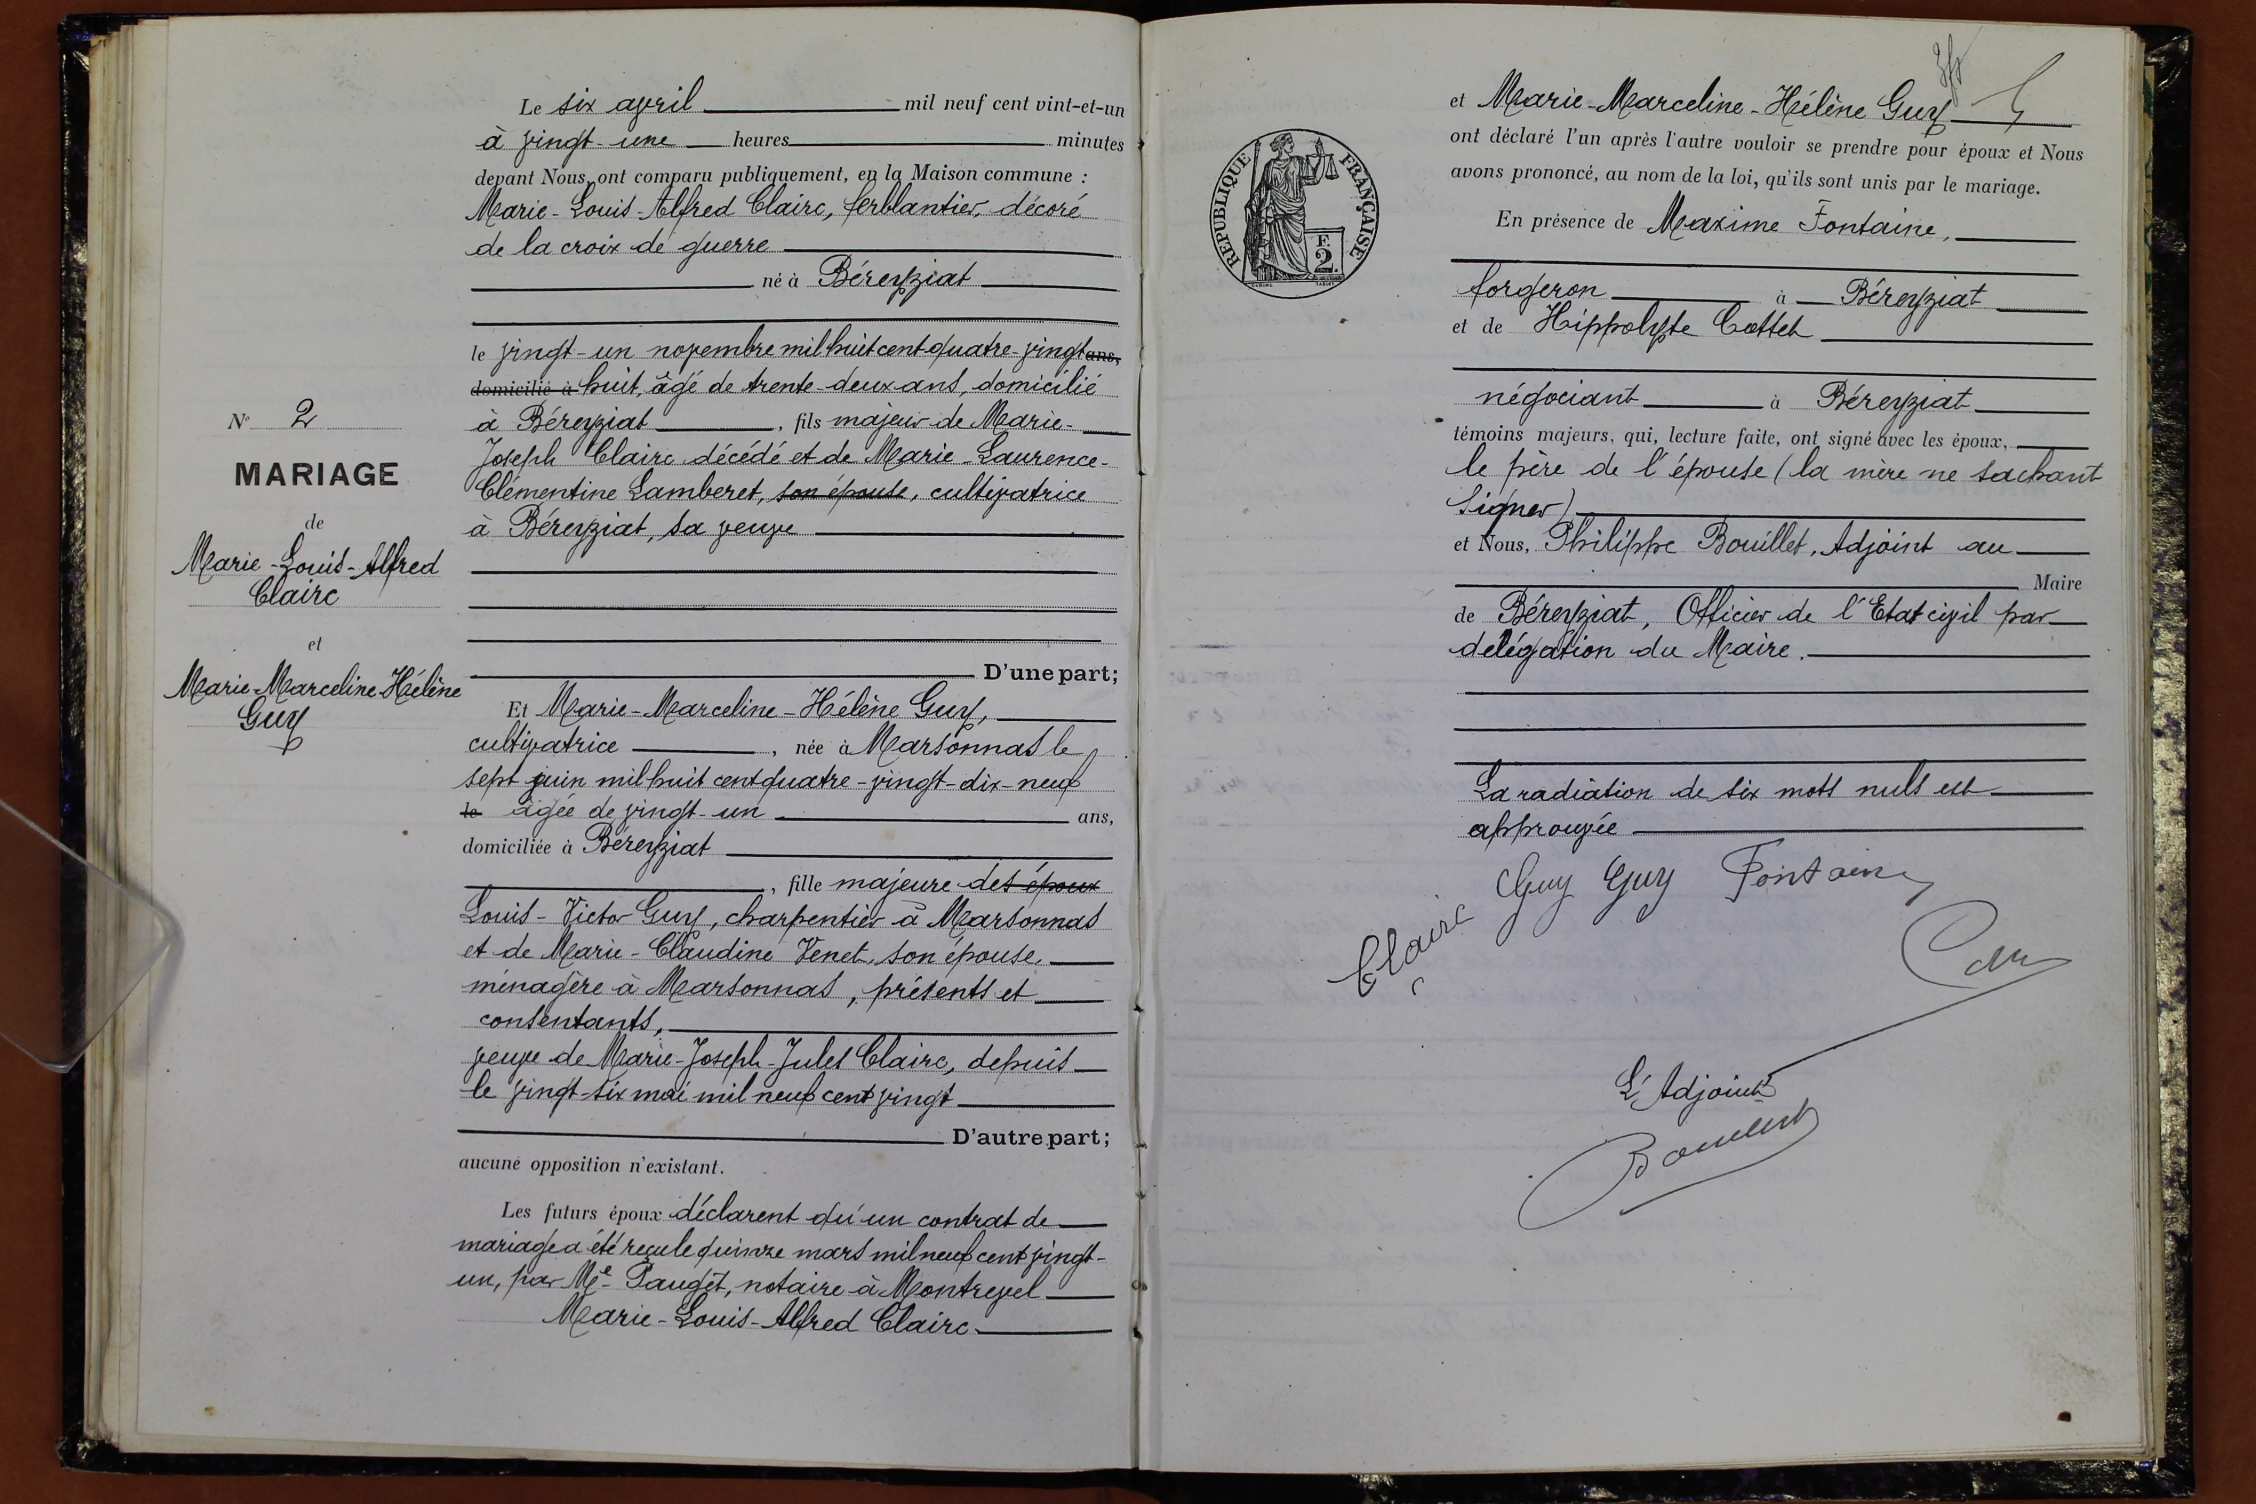 Le six avril mil neuf cent vint-et-un
à vingt-une heures minutes
devant Nous, ont comparu publiquement, en la Maison commune :
Marie-Louis-Alfred Clairc, ferblantier, décoré
de la croix de guerre
né à Béreyziat
le vingt-un novembre mil huit cent quatre-vingt ans,
domicilié à huit, âgé de trente-deux ans, domicilié
à Béreyziat, fils majeur de Marie-
Joseph Clairc décédé et de Marie-Laurence-
Clémentine Lamberet, son épouse, cultivatrice
à Béreyziat, sa veuve
D'une part;
Et Marie-Marceline-Hélène Guy,
cultivatrice, née à Marsonnas le
sept juin mil huit cent quatre-vingt-dix-neuf
le âgée de vingt-un ans,
domiciliée à Béreyziat
, fille majeure des époux
Louis-Victor Guy, charpentier à Marsonnas
et de Marie-Claudine Venet, son épouse,
ménagère à Marsonnas, présents et
consentants,
veuve de Marie-Joseph-Jules Clairc, depuis
le vingt-six mai mil neuf cent vingt
D'autre part;
aucune opposition n'existant.
Les futurs époux déclarent qu'un contrat de
mariage a été reçu le quinze mars mil neuf cent vingt-
un, par Me Pauget, notaire à Montrevel
Marie-Louis-Alfred Clairc
No 2
MARIAGE
de
Marie-Louis-Alfred
Clairc
et
Marie-Marceline-Hélène
Guy
RÉPUBLIQUE FRANÇAISE
E
2
et Marie-Marceline-Hélène Guy
ont déclaré l'un après l'autre vouloir se prendre pour époux et Nous
avons prononcé, au nom de la loi, qu'ils sont unis par le mariage.
En présence de Maxime Fontaine,
forgeron à Béreyziat
et de Hippolyte Cottet
négociant à Béreyziat
témoins majeurs, qui, lecture faite, ont signé avec les époux,
le père de l'épouse (la mère ne sachant
signer)
et Nous, Philippe Bouillet, Adjoint au
Maire
de Béreyziat, Officier de l'Etat civil par
délégation du Maire.
La radiation de six mots nuls est
approuvée
Clairc Guy Guy Fontaine
L'Adjoint
Bouillet